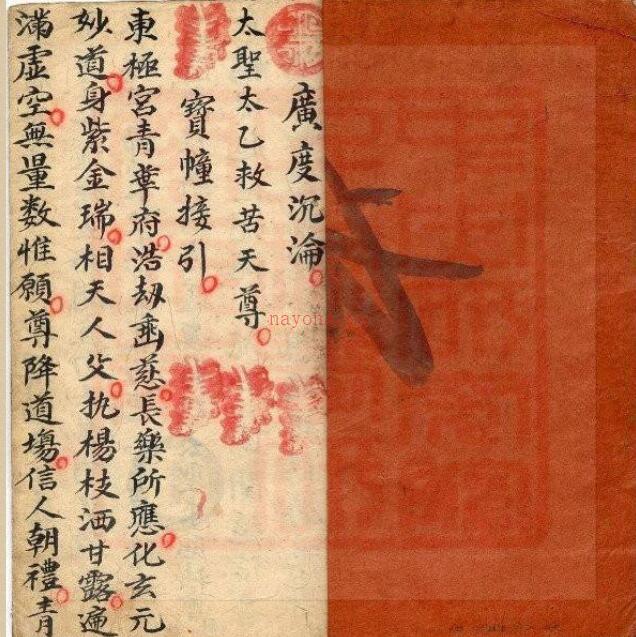 廣度沉淪
太聖太乙救苦天尊
寶幢接引
東極宮青華府浩劫垂慈長樂所應化玄元
妙道身紫金瑞相天人父执楊枝洒甘露遍
滿虛空無量数惟願尊降道場信人朝禮青
nayona